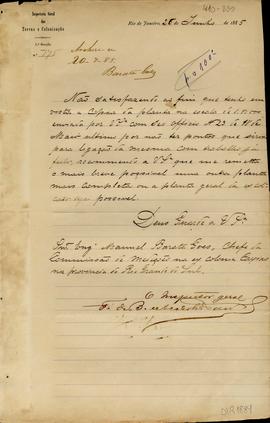 Inspectoria Geral
das
Terras e Colonização
Rio de Janeiro, 26 de Junho de 1885
775
Archive-se
20-7-85
Barata Góes
Não satisfazendo ao fim que tenho em
vista a copia da planta na escala de
enviada por V.Sª com seu officio nº 23 de 18 de
Maio ultimo por não ter pontos que sirvam
para ligação da mesma com trabalhos já
feitos, recommendo a V.Sª que me remetta
o mais breve possivel uma outra planta
mais completa ou a planta geral da ex colonia
caso seja possivel.
Deus Guarde a V.Sª
Snr. Engº Manuel Barata Góes, Chefe da
Commissão de Medições na ex colonia Caxias
na provincia do Rio Grande do Sul.
O Inspector geral